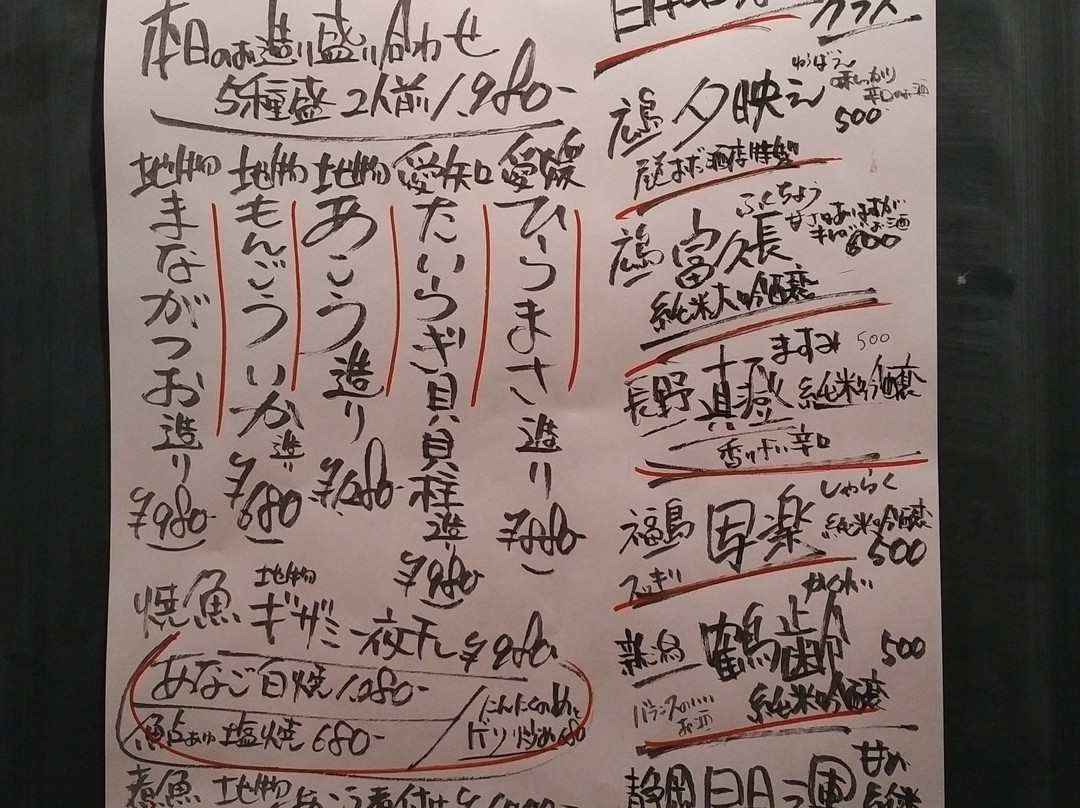 本日のお造り盛り合わせ
5種盛 2人前 1,980-
愛媛 ひらまさ 造り ¥880-
愛知 たいらぎ貝 貝柱 造り ¥980
地物 あこう 造り ¥1,280-
地物 もんごういか 造り ¥680
地物 まながつお 造り ¥980-
焼魚 地物 ギザミ 一夜干し ¥980
あなご白焼 1,280-
塩焼 680-
にんにくのめと
炒め 680
煮魚 地物
グラス
ゆうばえ
広島 夕映え
辛口のお酒
500
ふくちょう
広島 富久長
600
純米大吟醸
ますみ 500
長野 真澄 純米吟醸
香り高い辛口
しゃらく
福島 写楽 純米吟醸
500
かくれい
新潟 鶴齢 500
バランスのいい
お酒
純米吟醸
静岡
純米